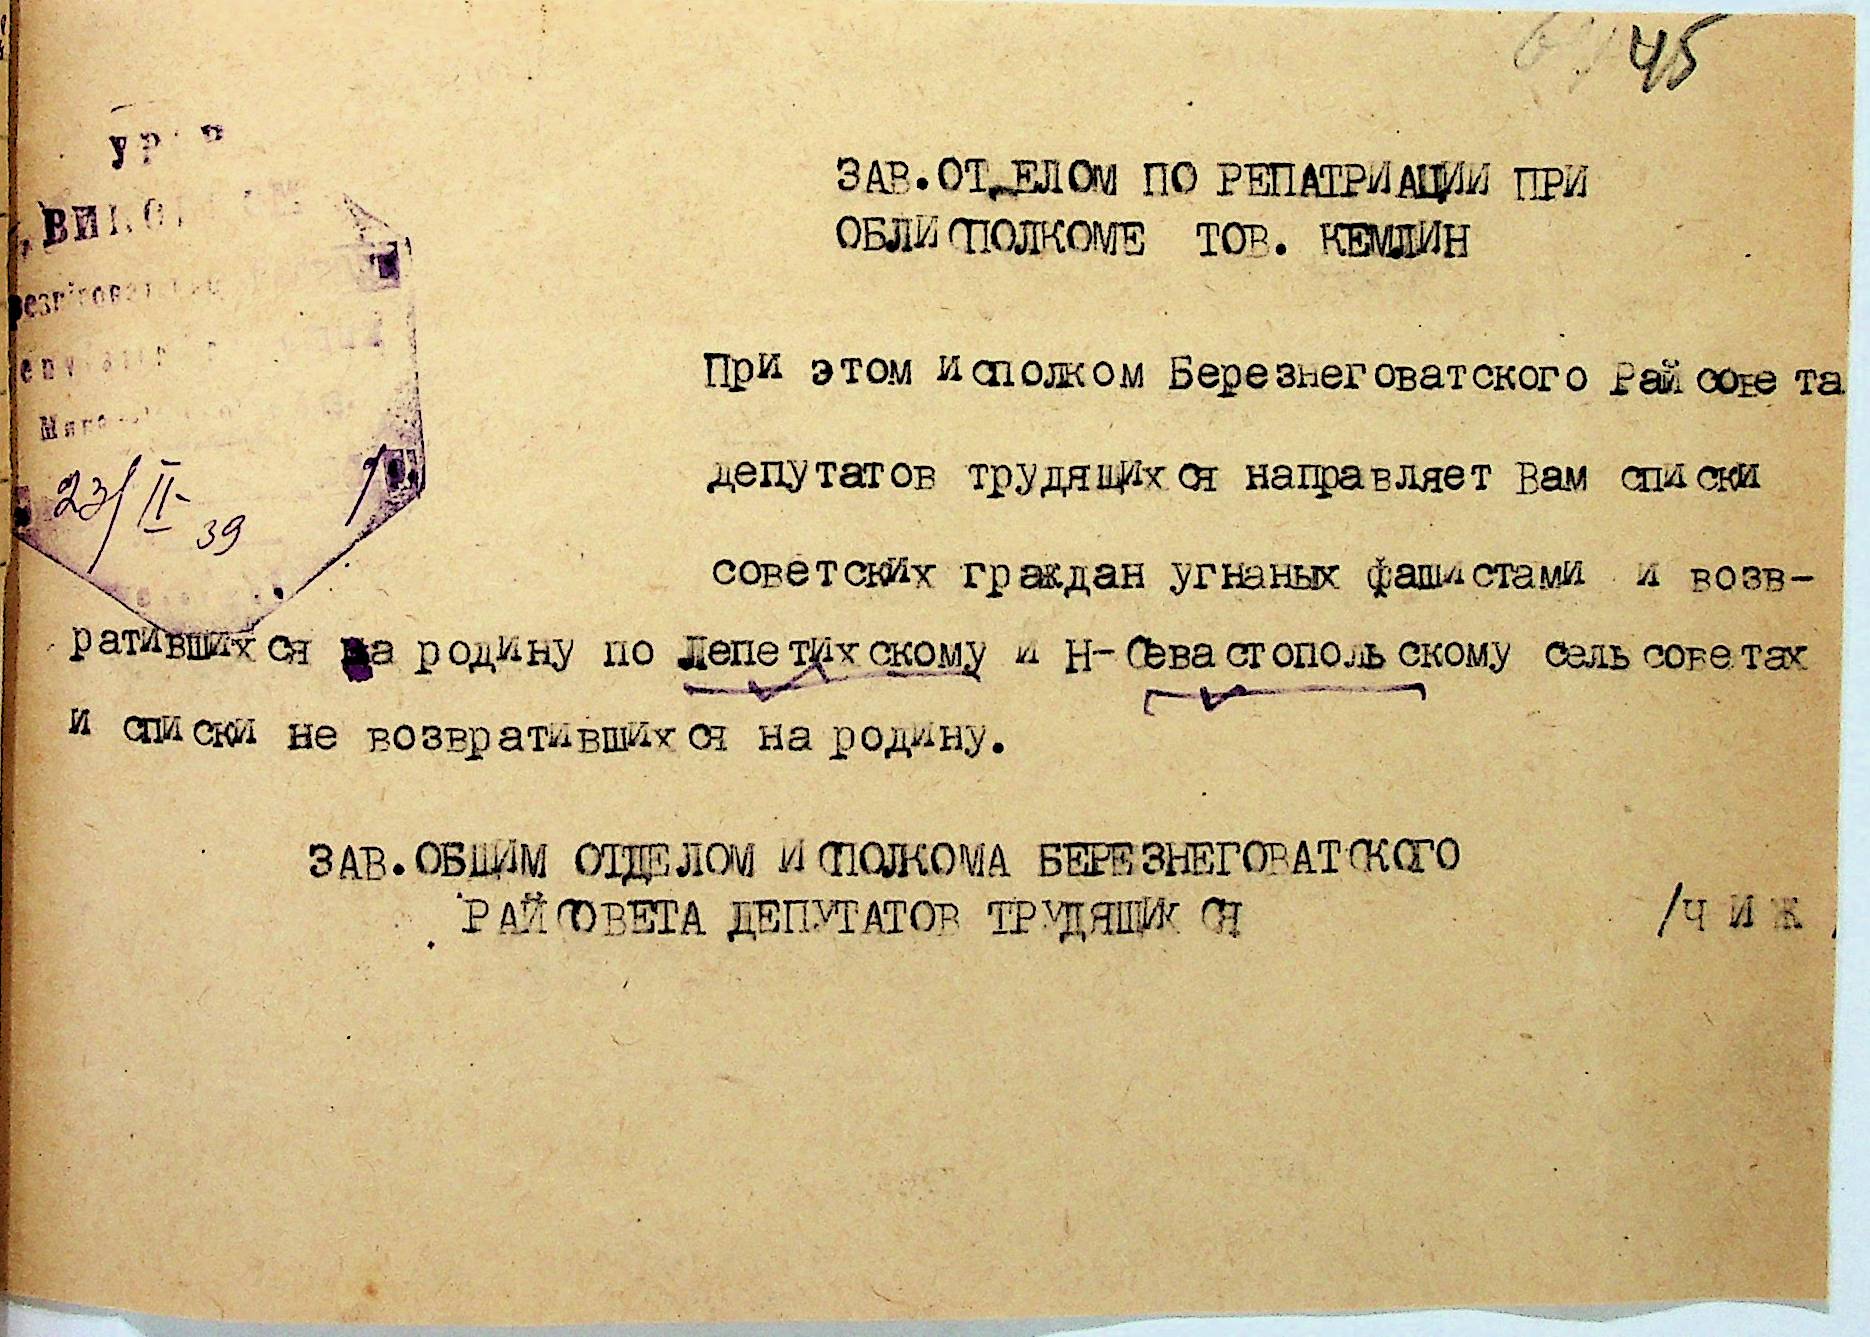 45
УРСР
ЗАВ.ОТДЕЛОМ ПО РЕПАТРИАЦИИ ПРИ
ОБЛИСПОЛКОМЕ ТОВ. КЕМЛИН
При этом исполком Березнеговатского Райсовета
депутатов трудящихся направляет Вам списки
23/II 39
советских граждан угнаных фашистами и возв-
ратившихся на родину по Лепетихскому и Н-Севастопольскому сельсоветах
и списки не возвратившихся на родину.
ЗАВ.ОБЩИМ ОТДЕЛОМ ИСПОЛКОМА БЕРЕЗНЕГОВАТСКОГО
РАЙСОВЕТА ДЕПУТАТОВ ТРУДЯЩИХСЯ /Ч И Ж/